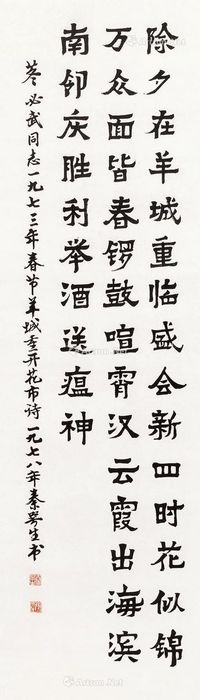 除夕在羊城重临盛会新四时花似锦
万众面皆春锣鼓喧霄汉云霞出海滨
南邻庆胜利举酒送瘟神
董必武同志一九七三年春节羊城重开花市诗一九七八年秦咢生书